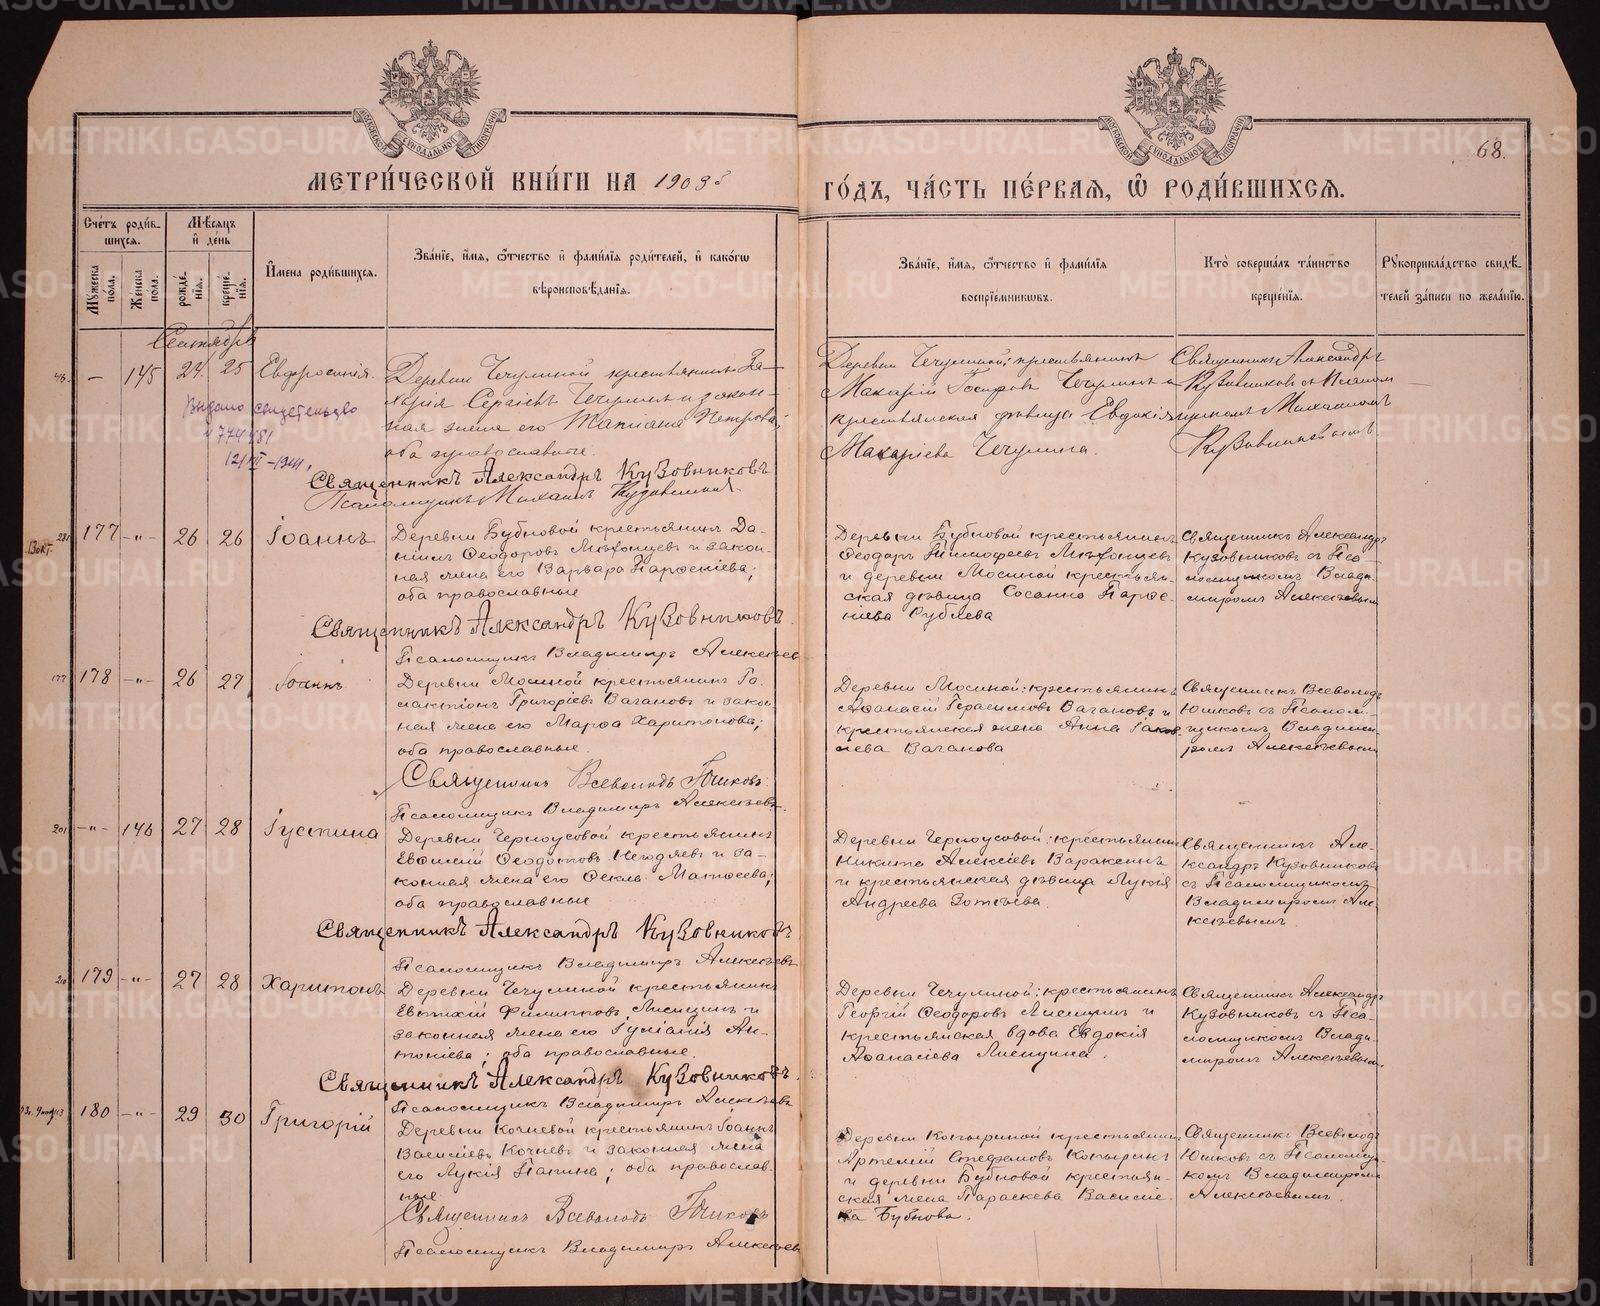 МЕТРИ́ЧЕСКОЙ КНИ́ГИ НА 1903й
ГО́ДЪ, ЧА́СТЬ ПЕ́РВАЯ, Ѽ РОДИ́ВШИХСЯ.
68.
Сче́тъ роди́в-
шихся.
Мѣ́сяцъ
и҆ де́нь
Му́жеска
по́ла.
Же́нска
по́ла.
рожде́-
нїя.
креще́-
нїя.
И҆мена роди́вшихся.
Зва́нїе, и҆́мя, ѻ҆́тчество и҆ фами́лїя роди́телей, и҆ како́гѡ
вѣроисповѣ́данїя.
Зва́нїе, и҆́мя, ѻ҆́тчество и҆ фами́лїя
воспрїе́мникѡвъ.
Кто̀ соверша́лъ та́инство
креще́нїя.
Рукоприкла́дство свидѣ́-
телей за́писи по жела́нїю.
Сентябрь
— 145 24 25 Евфросинія.
Деревни Чечулиной крестьянинъ За-
харія Сергіевъ Чечулинъ и закон-
ная жена его Татіана Петрова;
оба православные.
Выдано свидетельство
Священникъ Александръ Кузовниковъ
Псаломщикъ Михаилъ Кузовников.
Деревни Чечулиной: крестьянинъ
Макарій Чечулинъ и
крестьянская дѣвица Евдокія
Макаріева Чечулина.
Священникъ Александръ
Кузовниковъ съ Псалом-
щикомъ Михаиломъ
Кузовниковымъ.
177 —"— 26 26 Іоаннъ
Деревни Бубновой крестьянинъ Да-
ніилъ Ѳеодоровъ и закон-
ная жена его Варвара Парѳеніева;
оба православные
Священникъ Александръ Кузовниковъ
Псаломщикъ Владимиръ Алексѣевъ
Деревни Бубновой крестьянинъ
Ѳеодоръ Тимоѳеевъ
и деревни Мосиной крестьян-
ская дѣвица Парѳе-
ніева Рублева
Священникъ Александръ
Кузовниковъ съ Пса-
ломщикомъ Влади-
миромъ Алексѣевымъ
178 —"— 26 27 Іоаннъ
Деревни Мосиной крестьянинъ Га-
лактіонъ Григоріевъ Вагановъ и закон-
ная жена его Марѳа Харитонова;
оба православные.
Священникъ Всеволодъ Юшковъ
Псаломщикъ Владимиръ Алексѣевъ.
Деревни Мосиной: крестьянинъ
Аѳанасій Герасимовъ Вагановъ и
крестьянская жена Анна Іаков-
лева Ваганова
Священникъ Всеволодъ
Юшковъ съ Псалом-
щикомъ Владими-
ромъ Алексѣевымъ
—"— 146 27 28 Іустина
Деревни Черноусовой крестьянинъ
Евѳимій Ѳеодотовъ Негодяевъ и за-
конная жена его Ѳекла Матѳеева;
оба православные
Священникъ Александръ Кузовниковъ
Псаломщикъ Владимиръ Алексѣевъ
Деревни Черноусовой: крестьянинъ
Никита Алексіевъ Вараксинъ
и крестьянская дѣвица Лукія
Андреева Зотеева.
Священникъ Але-
ксандръ Кузовниковъ
съ Псаломщикомъ
Владимиромъ Але-
ксѣевымъ
179 —"— 27 28 Харитонъ
Деревни Чечулиной крестьянинъ
Евтихій Филипповъ Лисицинъ и
законная жена его Іуліанія Ан-
тоніева; оба православные.
Священникъ Александръ Кузовниковъ.
Псаломщикъ Владимиръ Алексѣевъ
Деревни Чечулиной: крестьянинъ
Георгій Ѳеодоровъ Лисицинъ и
крестьянская вдова Евдокія
Аѳанасіева Лисицина.
Священникъ Александръ
Кузовниковъ съ Пса-
ломщикомъ Влади-
миромъ Алексѣевымъ
180 —"— 29 30 Григорій
Деревни Кочневой крестьянинъ Іоаннъ
Василіевъ Кочневъ и законная жена
его Лукія Папина; оба православ-
ные
Священникъ Всеволодъ Юшковъ
Псаломщикъ Владимиръ Алексѣевъ
Деревни Копыриной крестьянинъ
Артемій Стефановъ Копыринъ
и деревни Бубновой крестьян-
ская жена Параскева Василіе-
ва Бубнова.
Священникъ Всеволодъ
Юшковъ съ Псаломщи-
комъ Владимиромъ
Алексѣевымъ.
METRIKI.GASO-URAL.RU